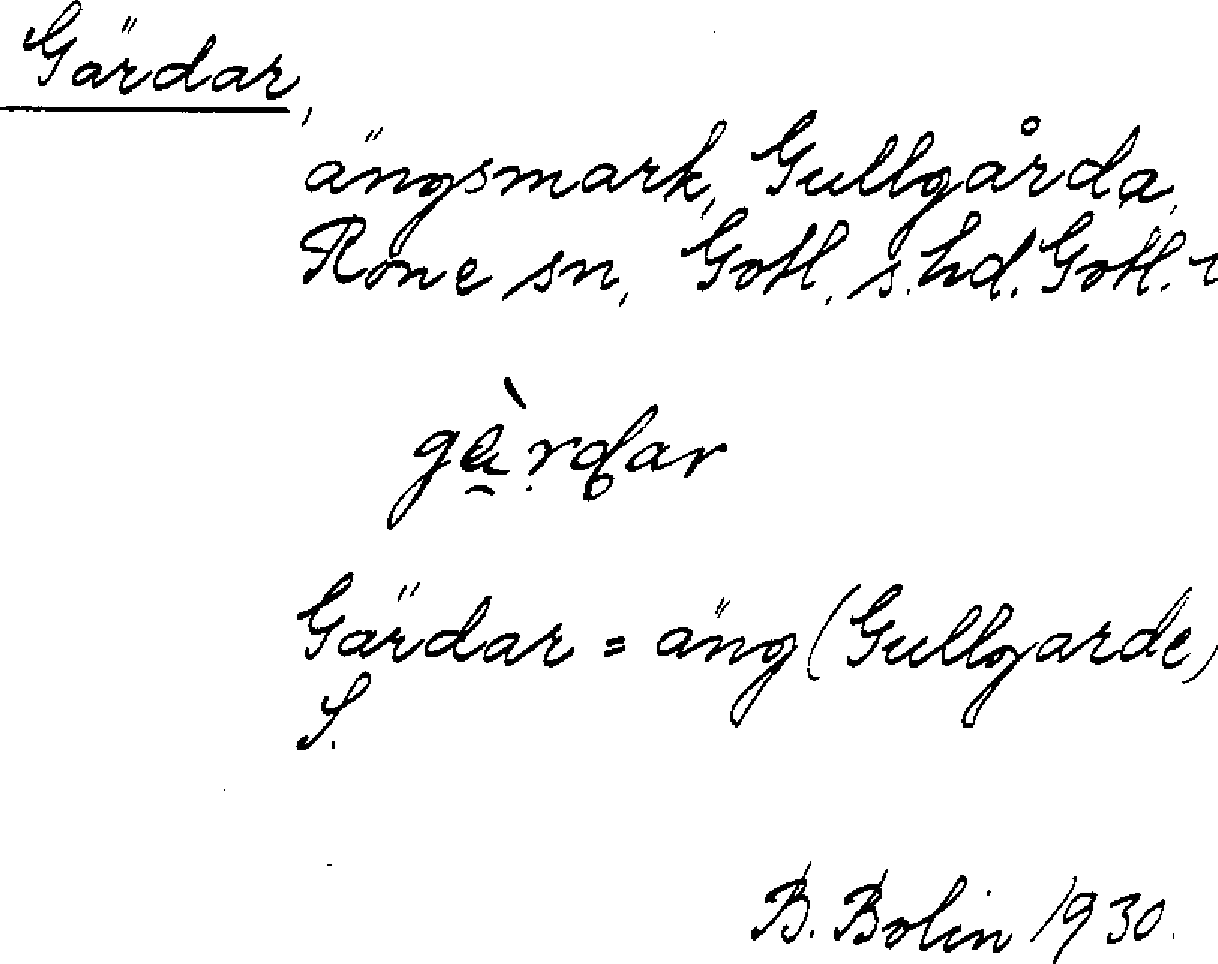 Gärdar,
ängsmark, Gullgårda,
Rone sn, Gotl. s. hd. Gotl.
Gärdar = äng (Gullgarde)
S.
B. Bolin 1930.